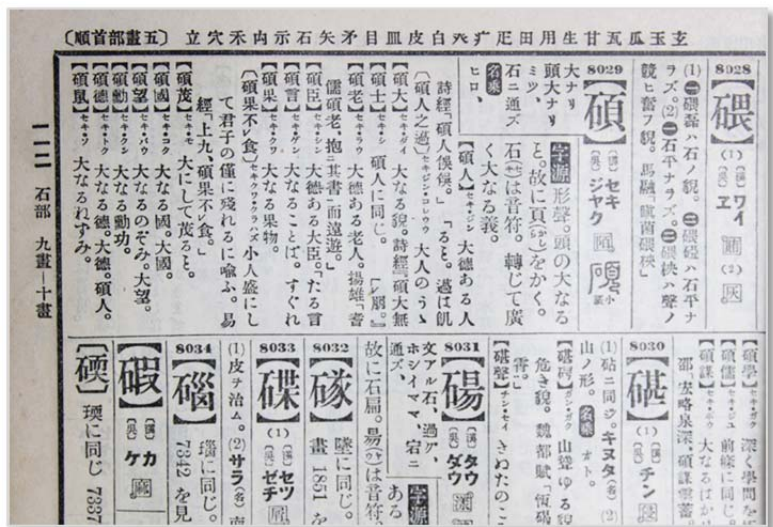 玄玉瓜瓦甘生用田疋疒癶白皮皿目矛矢石示禸禾穴立〔五畫部首順〕
8028
【碨】
(1)
〔漢〕ワイ
〔呉〕ヱ
(2)
(1)㊀碨磊ハ石ノ貌。㊁碨磈ハ石平ナ
ラズ。(2)㊀石平ナラズ。㊁碨柍ハ聲ノ
競ヒ奮フ貌。馬融
8029
【碩】
〔漢〕セキ
〔呉〕ジヤク
小篆
大ナリ
頭大ナリ
ミツ、
石ニ通ズ
名乘
ヒロ、
字源 形聲。頭の大なる
と。故に頁(かしら)をかく。
石(セキ)は音符。轉じて廣
く大なる義。
【碩人】セキ・ジン 大德ある人
詩經「碩人俁俁。」
〔碩人之薖〕セキジン・コレクワ 大人のうゝ
【碩大】セキ・ダイ 大なる貌。詩經「碩大無
【碩士】セキ・シ 碩人に同じ。
【碩老】セキ・ラウ 大德ある老人。揚雄「耆
儒碩老、抱二其書一而遠遊。」
【碩臣】セキ・シン 大德ある大臣。
【碩言】セキ・ゲン 大なることば。すぐれ
【碩果】セキ・クワ 大なる果物。
〔碩果不レ食〕セキクワ・クラハズ 小人盛にし
て君子の僅に殘れるに喩ふ。易
經「上九、碩果不レ食。」
【碩茂】セキ・モ 大にして茂ると。
【碩國】セキ・コク 大なる國。大國。
【碩望】セキ・バウ 大なるのぞみ。大望。
【碩勳】セキ・クン 大なる勳功。
【碩德】セキ・トク 大なる德。大德。碩人。
【碩鼠】セキ・ソ 大なるねずみ。
【碩學】セキ・ガク 深く學問を
【碩儒】セキ・ジュ 前條に同じ
【碩謀】セキ・ボウ 大なるはか
8030
【碪】
(1)
〔漢〕チン
(1)砧ニ同ジ。キヌタ(名) (2)
山ノ形。 名乘 オト。
【碪碍】ガン・ガク 山聳ゆる
危き貌。魏都賦
【碪聲】チン・セイ きぬたのこ
8031
【碭】
〔漢〕タウ
〔呉〕ダウ
文アル石、過グ、
ホシイママ、宕ニ
通ズ、
字源
ある
故に石扁。昜(ヤウ)は音符。
8032
【䃍】
墜に同じ。
畫 1831 を
8033
【碟】
(1)
〔漢〕セツ
〔呉〕ゼチ
(1)皮ヲ治ム。(2)サラ(名)
8034
【碯】
瑙に同じ。
7342 を見
【碬】
〔漢〕カ
〔呉〕ケ
〔碝〕瑌に同じ 7337
一一一二 石部 九畫—十畫